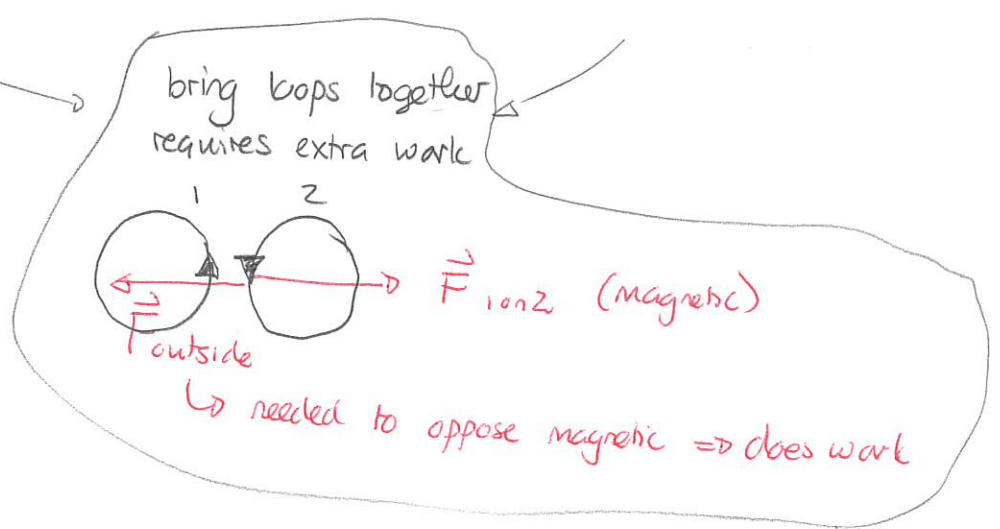 bring loops together
requires extra work
1 2
F⃗ 1 on 2 (magnetic)
F⃗ outside
↳ needed to oppose magnetic ⇒ does work